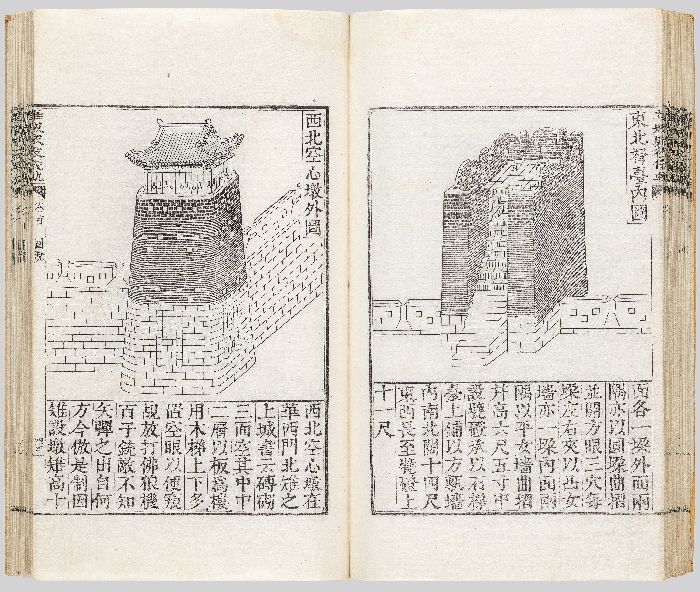 東北內圖
面各一垜外面兩
隅亦以圓垜曲摺
並開方眼三穴每
垜左右夾以凸女
墻亦一垜內面兩
隅以平女墻曲摺
幷高六尺五寸中
設甓磴承以石梯
臺上鋪以方甎墻
內南北闊十四尺
東西長至甓磴上
十一尺
西北空心墩外圖
西北空心墩在
華西門北雉之
上城書云磚砌
三面空其中中
二層以板爲樓
用木梯上下多
置空眼以便窺
覘放打佛狼機
百子銃敵不知
矢彈之由自何
方今倣是制因
雉設墩雉高十